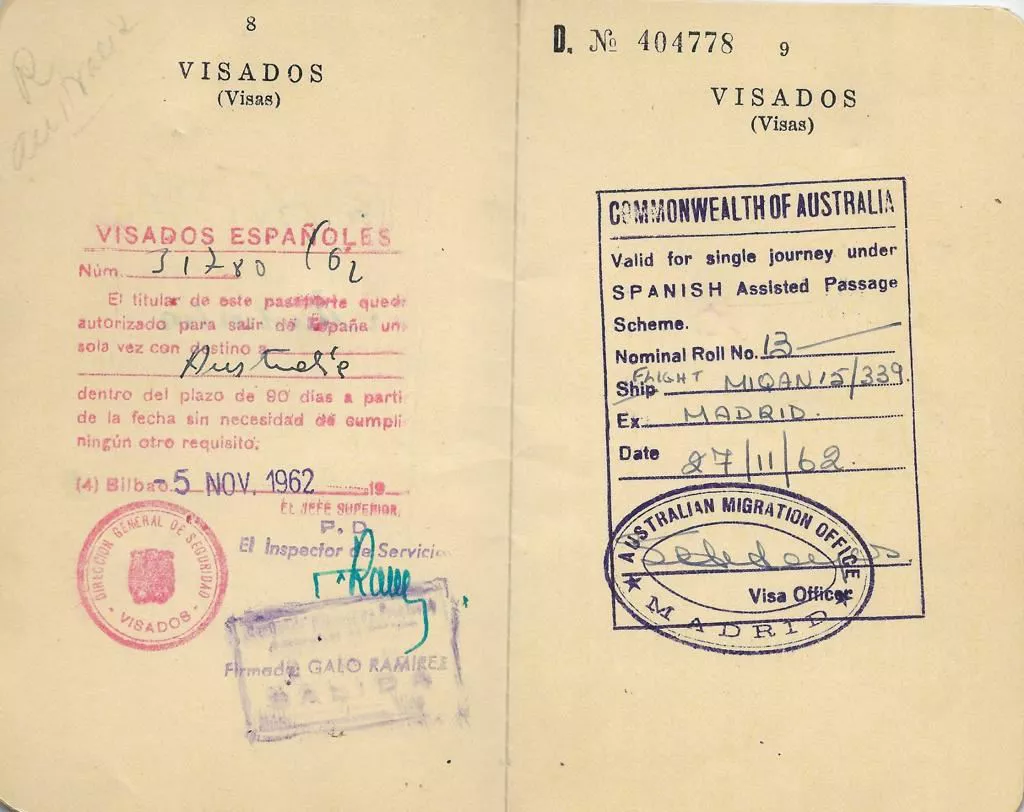 8
VISADOS
(Visas)
VISADOS ESPAÑOLES
Núm. 31780/62
El titular de este pasaporte qued
autorizado para salir de España un
sola vez con destino a
Australia
dentro del plazo de 90 días a parti
de la fecha sin necesidad de cumpli
ningún otro requisito.
(4) Bilbao -5 NOV. 1962 19
EL JEFE SUPERIOR,
P. D.
El Inspector de Servicio
DIRECCION GENERAL DE SEGURIDAD
- VISADOS -
Firmado: GALO RAMIREZ
SALIDA
D. № 404778 9
VISADOS
(Visas)
COMMONWEALTH OF AUSTRALIA
Valid for single journey under
SPANISH Assisted Passage
Scheme.
Nominal Roll No. 13
FLIGHT
Ship MIQAN 15/339
Ex MADRID.
Date 27/11/62.
AUSTRALIAN MIGRATION OFFICE
Visa Officer
MADRID